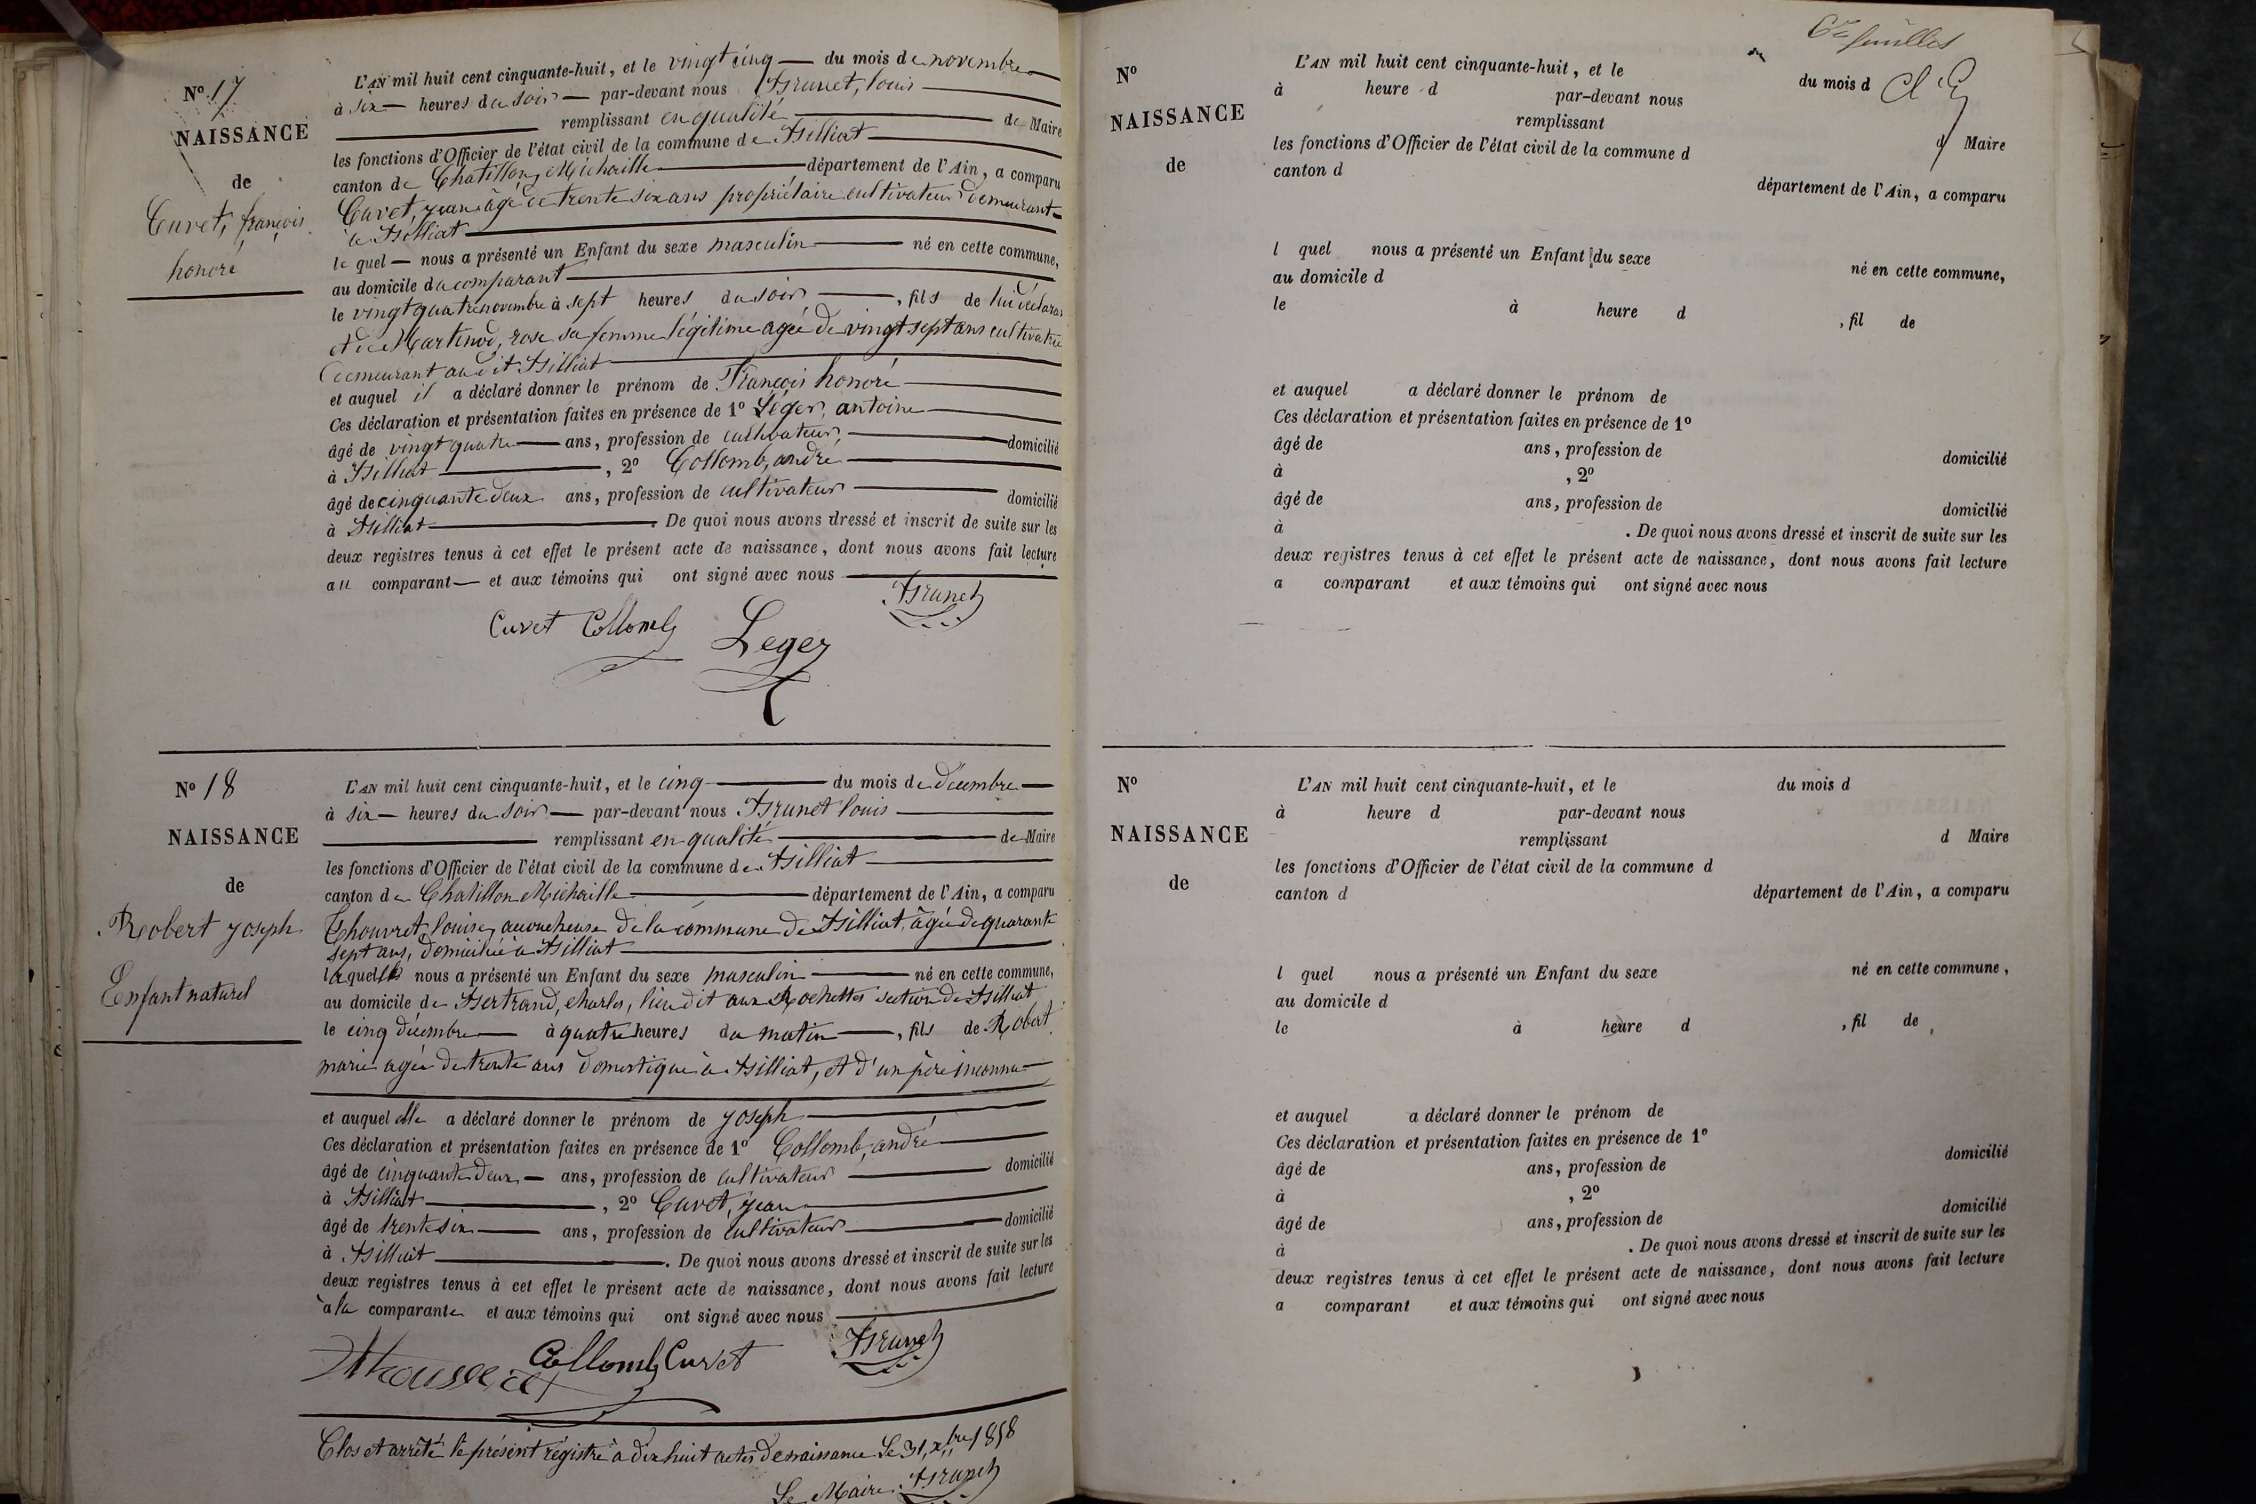 N° 17
NAISSANCE
de
Cuvet, françois
honoré
L'AN mil huit cent cinquante-huit, et le vingt cinq du mois de novembre
à six heures du soir par-devant nous Brunet, louis
remplissant en qualité de Maire
les fonctions d'Officier de l'état civil de la commune de Billiat
canton de Chatillon Michaille département de l'Ain, a comparu
Cuvet, jean âgé de trente six ans propriétaire cultivateur demeurant
à Billiat
le quel nous a présenté un Enfant du sexe masculin né en cette commune,
au domicile du comparant
le vingt quatre novembre à sept heures du soir, fils de lui déclarant
et de Martinod, rose sa femme légitime agée de vingt sept ans cultivatrice
demeurant au dit Billiat
et auquel il a déclaré donner le prénom de François honoré
Ces déclaration et présentation faites en présence de 1° Léger, antoine
âgé de vingt quatre ans, profession de cultivateur, domicilié
à Billiat, 2° Collomb, andré
âgé de cinquante deux ans, profession de cultivateur domicilié
à Billiat. De quoi nous avons dressé et inscrit de suite sur les
deux registres tenus à cet effet le présent acte de naissance, dont nous avons fait lecture
au comparant et aux témoins qui ont signé avec nous
Brunet
Cuvet Collomb Leger
N° 18
NAISSANCE
de
Robert joseph
Enfant naturel
L'AN mil huit cent cinquante-huit, et le cinq du mois de décembre
à six heures du soir par-devant nous Brunet louis
remplissant en qualité de Maire
les fonctions d'Officier de l'état civil de la commune de Billiat
canton de Chatillon Michaille département de l'Ain, a comparu
louise, accoucheuse de la commune de Billiat, âgée de quarante
sept ans, domiciliée à Billiat
laquelle nous a présenté un Enfant du sexe masculin né en cette commune,
au domicile de Bertrand, charles, lieu dit aux Rochettes section de Billiat
le cinq décembre à quatre heures du matin, fils de Robert
marie agée de trente ans domestique à Billiat, et d'un père inconnu
et auquel elle a déclaré donner le prénom de joseph
Ces déclaration et présentation faites en présence de 1° Collomb, andré
âgé de cinquante deux ans, profession de cultivateur domicilié
à Billiat, 2° Cuvet, jean
âgé de trente six ans, profession de cultivateur domicilié
à Billiat. De quoi nous avons dressé et inscrit de suite sur les
deux registres tenus à cet effet le présent acte de naissance, dont nous avons fait lecture
à la comparante et aux témoins qui ont signé avec nous
Collomb Cuvet Brunet
Clos et arrêté le présent régistre à dix huit actes de naissance Le 31 xbre 1858
Le Maire Brunet
feuilles
N°
NAISSANCE
de
L'AN mil huit cent cinquante-huit, et le du mois d
à heure d par-devant nous
remplissant d Maire
les fonctions d'Officier de l'état civil de la commune d
canton d département de l'Ain, a comparu
l quel nous a présenté un Enfant du sexe né en cette commune,
au domicile d
le à heure d , fil de
et auquel a déclaré donner le prénom de
Ces déclaration et présentation faites en présence de 1°
âgé de ans, profession de domicilié
à , 2°
âgé de ans, profession de domicilié
à . De quoi nous avons dressé et inscrit de suite sur les
deux registres tenus à cet effet le présent acte de naissance, dont nous avons fait lecture
a comparant et aux témoins qui ont signé avec nous
N°
NAISSANCE
de
L'AN mil huit cent cinquante-huit, et le du mois d
à heure d par-devant nous
remplissant d Maire
les fonctions d'Officier de l'état civil de la commune d
canton d département de l'Ain, a comparu
l quel nous a présenté un Enfant du sexe né en cette commune,
au domicile d
le à heure d , fil de
et auquel a déclaré donner le prénom de
Ces déclaration et présentation faites en présence de 1°
âgé de ans, profession de domicilié
à , 2°
âgé de ans, profession de domicilié
à . De quoi nous avons dressé et inscrit de suite sur les
deux registres tenus à cet effet le présent acte de naissance, dont nous avons fait lecture
a comparant et aux témoins qui ont signé avec nous